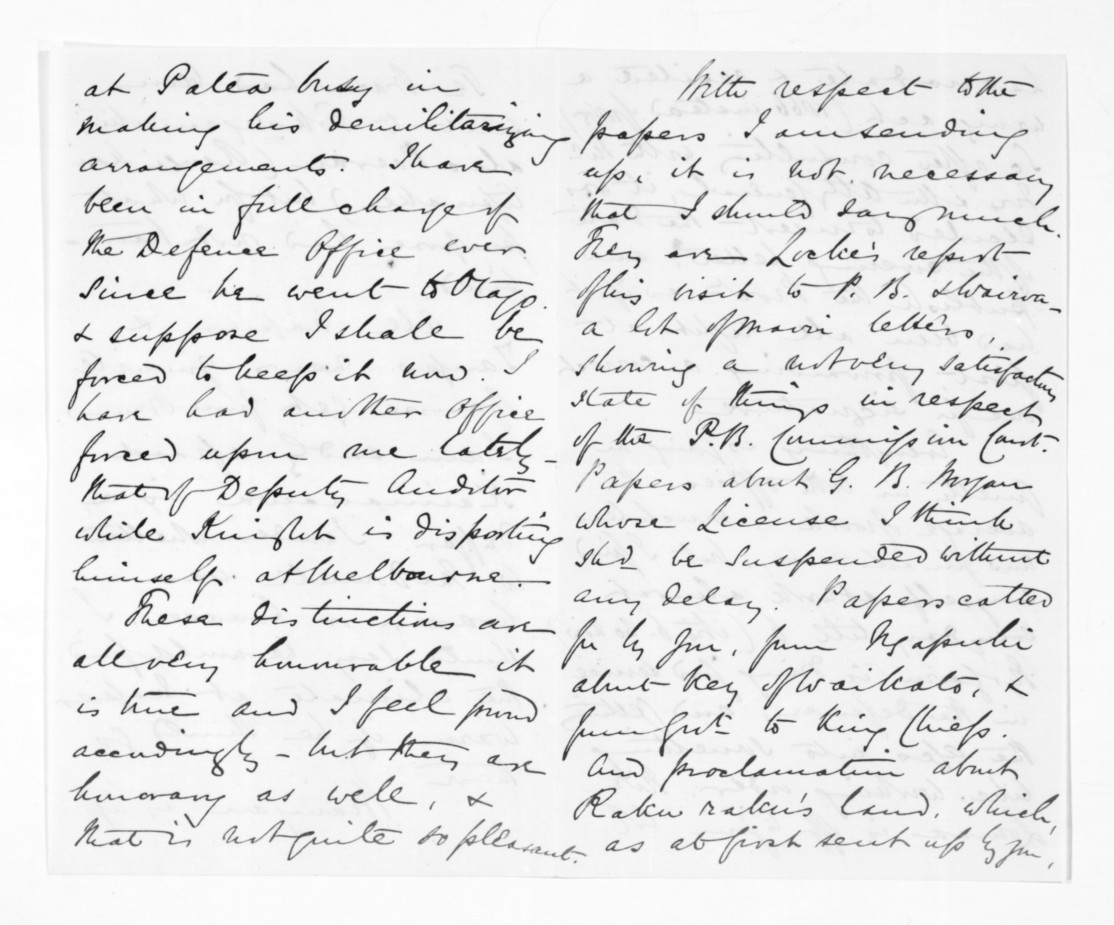 at Patea busy in
making his demilitarizing
arrangements. I have
been in full charge of
the Defence Office ever
since he went to Otago.
& suppose I shall be
forced to keep it now. I
have had another Office
forced upon me lately -
that of Deputy Auditor
while Knight is disporting
himself at Melbourne. -
These distinctions are
all very honourable it
is true and I feel proud
accordingly - but they are
honorary as well, &
that is not quite so pleasant.
With respect to the
papers I am sending
up, it is not necessary
that I should say much.
They are Locke's report
of his visit to P. B. & Wairoa -
a lot of Maori letters,
showing a not very satisfactory
state of things in respect
of the P.B. Commission Court.
Papers about G. B.
whose License I think
shd be suspended without
any delay. Papers called
for by you, from Ngapuhi
about Key of Waikato, &
from Govt to King Chiefs.
And proclamation about
Rakuraku's land, which,
as at first sent up by you,